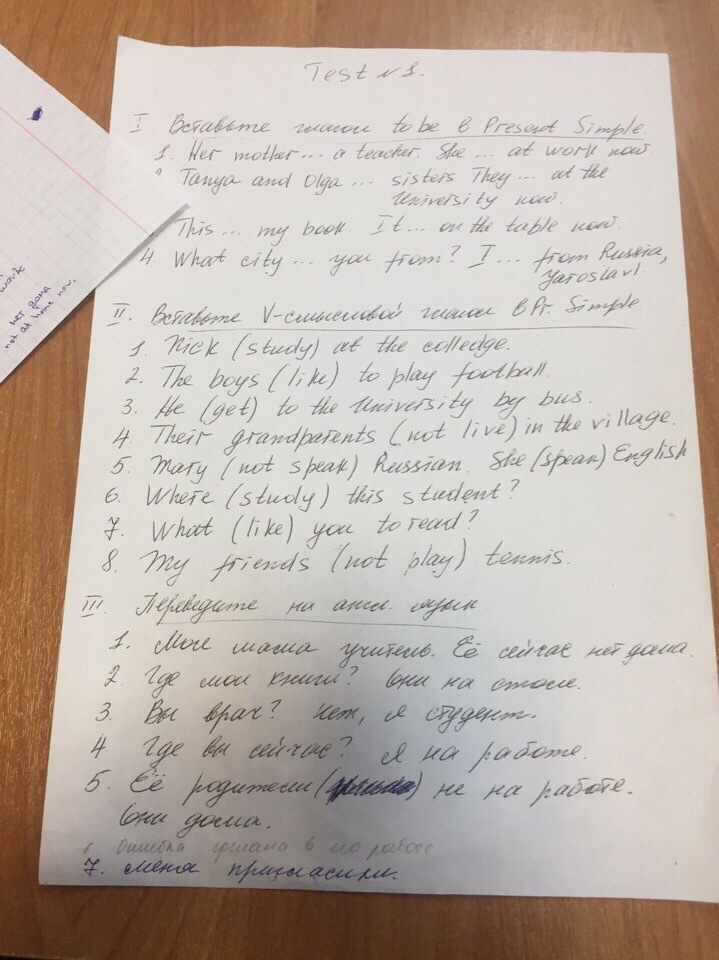 Test N 1.
I. Вставьте глагол to be в Present Simple.
1. Her mother ... a teacher. She ... at work now.
Tanya and Olga ... sisters. They ... at the
University now.
This ... my book. It ... on the table now.
4. What city ... you from? I ... from Russia,
Yaroslavl.
II. Вставьте V-смысловой глагол в Pr. Simple
1. Nick (study) at the colledge.
2. The boys (like) to play football.
3. He (get) to the University by bus.
4. Their grandparents (not live) in the village.
5. Mary (not speak) Russian. She (speak) English
6. Where (study) this student?
7. What (like) you to read?
8. My friends (not play) tennis.
III. Переведите на англ. язык
1. Моя мама учитель. Её сейчас нет дома.
2. Где мои книги? Они на столе.
3. Вы врач? Нет, я студент.
4 Где вы сейчас? Я на работе.
5. Её родители не на работе.
Они дома.
6 Ошибка сделана в его работе
7. Меня пригласили.
work
нет дома
not at home now.